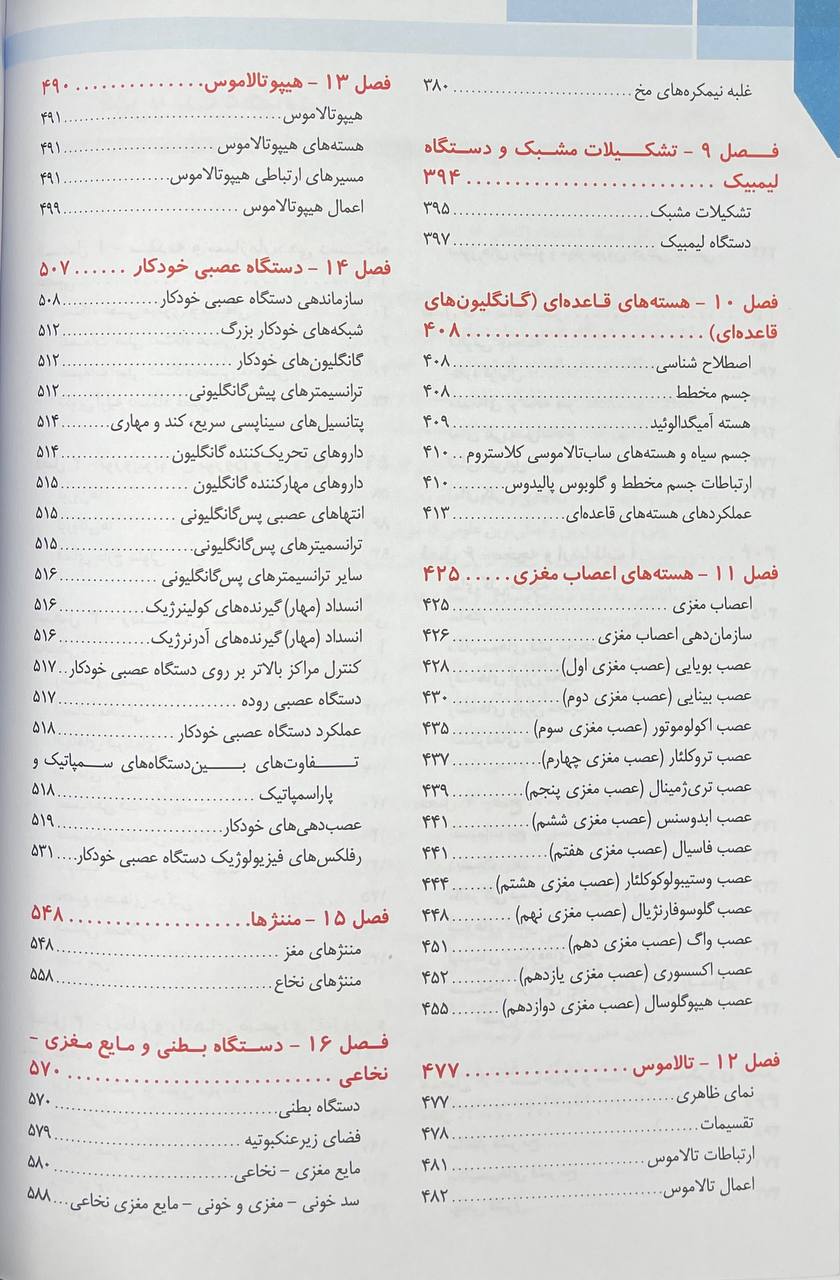 غلبه نیمکره‌های مخ ............................. ۳۸۰
فـــصل ۹ - تشکــیلات مشـبک و دسـتگاه
لیمبیک ........................... ۳۹۴
تشکیلات مشبک ............................. ۳۹۵
دستگاه لیمبیک ............................. ۳۹۷
فصل ۱۰ - هسته‌های قـاعده‌ای (گـانگلیون‌های
قاعده‌ای) .......................... ۴۰۸
اصطلاح شناسی ............................. ۴۰۸
جسم مخطط ............................. ۴۰۸
هسته آمیگدالوئید ............................. ۴۰۹
جسم سیاه و هسته‌های ساب‌تالاموسی کلاستروم .. ۴۱۰
ارتباطات جسم مخطط و گلوبوس پالیدوس ........... ۴۱۰
عملکردهای هسته‌های قاعده‌ای .................. ۴۱۳
فصل ۱۱ - هسته‌های اعصاب مغزی ..... ۴۲۵
اعصاب مغزی ............................. ۴۲۵
سازمان‌دهی اعصاب مغزی ...................... ۴۲۶
عصب بویایی (عصب مغزی اول) .................. ۴۲۸
عصب بینایی (عصب مغزی دوم) .................. ۴۳۰
عصب اکولوموتور (عصب مغزی سوم) .............. ۴۳۵
عصب تروکلئار (عصب مغزی چهارم) .............. ۴۳۷
عصب تری‌ژمینال (عصب مغزی پنجم) ............. ۴۳۹
عصب ابدوسنس (عصب مغزی ششم) ............... ۴۴۱
عصب فاسیال (عصب مغزی هفتم) ................ ۴۴۱
عصب وستیبولوکوکلئار (عصب مغزی هشتم) ....... ۴۴۴
عصب گلوسوفارنژیال (عصب مغزی نهم) .......... ۴۴۸
عصب واگ (عصب مغزی دهم) .................... ۴۵۱
عصب اکسسوری (عصب مغزی یازدهم) ............ ۴۵۲
عصب هیپوگلوسال (عصب مغزی دوازدهم) ........ ۴۵۵
فصل ۱۲ - تالاموس ................. ۴۷۷
نمای ظاهری ............................. ۴۷۷
تقسیمات ............................. ۴۷۸
ارتباطات تالاموس ............................. ۴۸۱
اعمال تالاموس ............................. ۴۸۲
فصل ۱۳ - هیپوتالاموس .............. ۴۹۰
هیپوتالاموس ............................. ۴۹۱
هسته‌های هیپوتالاموس ........................ ۴۹۱
مسیرهای ارتباطی هیپوتالاموس ................. ۴۹۱
اعمال هیپوتالاموس ............................. ۴۹۹
فصل ۱۴ - دستگاه عصبی خودکار ...... ۵۰۷
سازماندهی دستگاه عصبی خودکار ................ ۵۰۸
شبکه‌های خودکار بزرگ ........................ ۵۱۲
گانگلیون‌های خودکار ........................ ۵۱۲
ترانسیمترهای پیش‌گانگلیونی .................. ۵۱۲
پتانسیل‌های سیناپسی سریع، کند و مهاری ........ ۵۱۴
داروهای تحریک‌کننده گانگلیون ................ ۵۱۴
داروهای مهارکننده گانگلیون .................. ۵۱۵
انتهاهای عصبی پس‌گانگلیونی .................. ۵۱۵
ترانسمیترهای پس‌گانگلیونی ................... ۵۱۵
سایر ترانسیمترهای پس‌گانگلیونی .............. ۵۱۶
انسداد (مهار) گیرنده‌های کولینرژیک ........... ۵۱۶
انسداد (مهار) گیرنده‌های آدرنرژیک ............ ۵۱۶
کنترل مراکز بالاتر بر روی دستگاه عصبی خودکار .. ۵۱۷
دستگاه عصبی روده ........................... ۵۱۷
عملکرد دستگاه عصبی خودکار ................... ۵۱۸
تـــفاوت‌های بـــین‌دستگاه‌های ســـمپاتیک و
پاراسمپاتیک ............................. ۵۱۸
عصب‌دهی‌های خودکار ......................... ۵۱۹
رفلکس‌های فیزیولوژیک دستگاه عصبی خودکار .... ۵۳۱
فصل ۱۵ - مننژها ................... ۵۴۸
مننژهای مغز ............................. ۵۴۸
مننژهای نخاع ............................. ۵۵۸
فـصل ۱۶ - دسـتگاه بـطنی و مایع مـغزی -
نخاعی ............................. ۵۷۰
دستگاه بطنی ............................. ۵۷۰
فضای زیرعنکبوتیه ............................. ۵۷۹
مایع مغزی - نخاعی ............................. ۵۸۰
سد خونی - مغزی و خونی - مایع مغزی نخاعی ... ۵۸۸